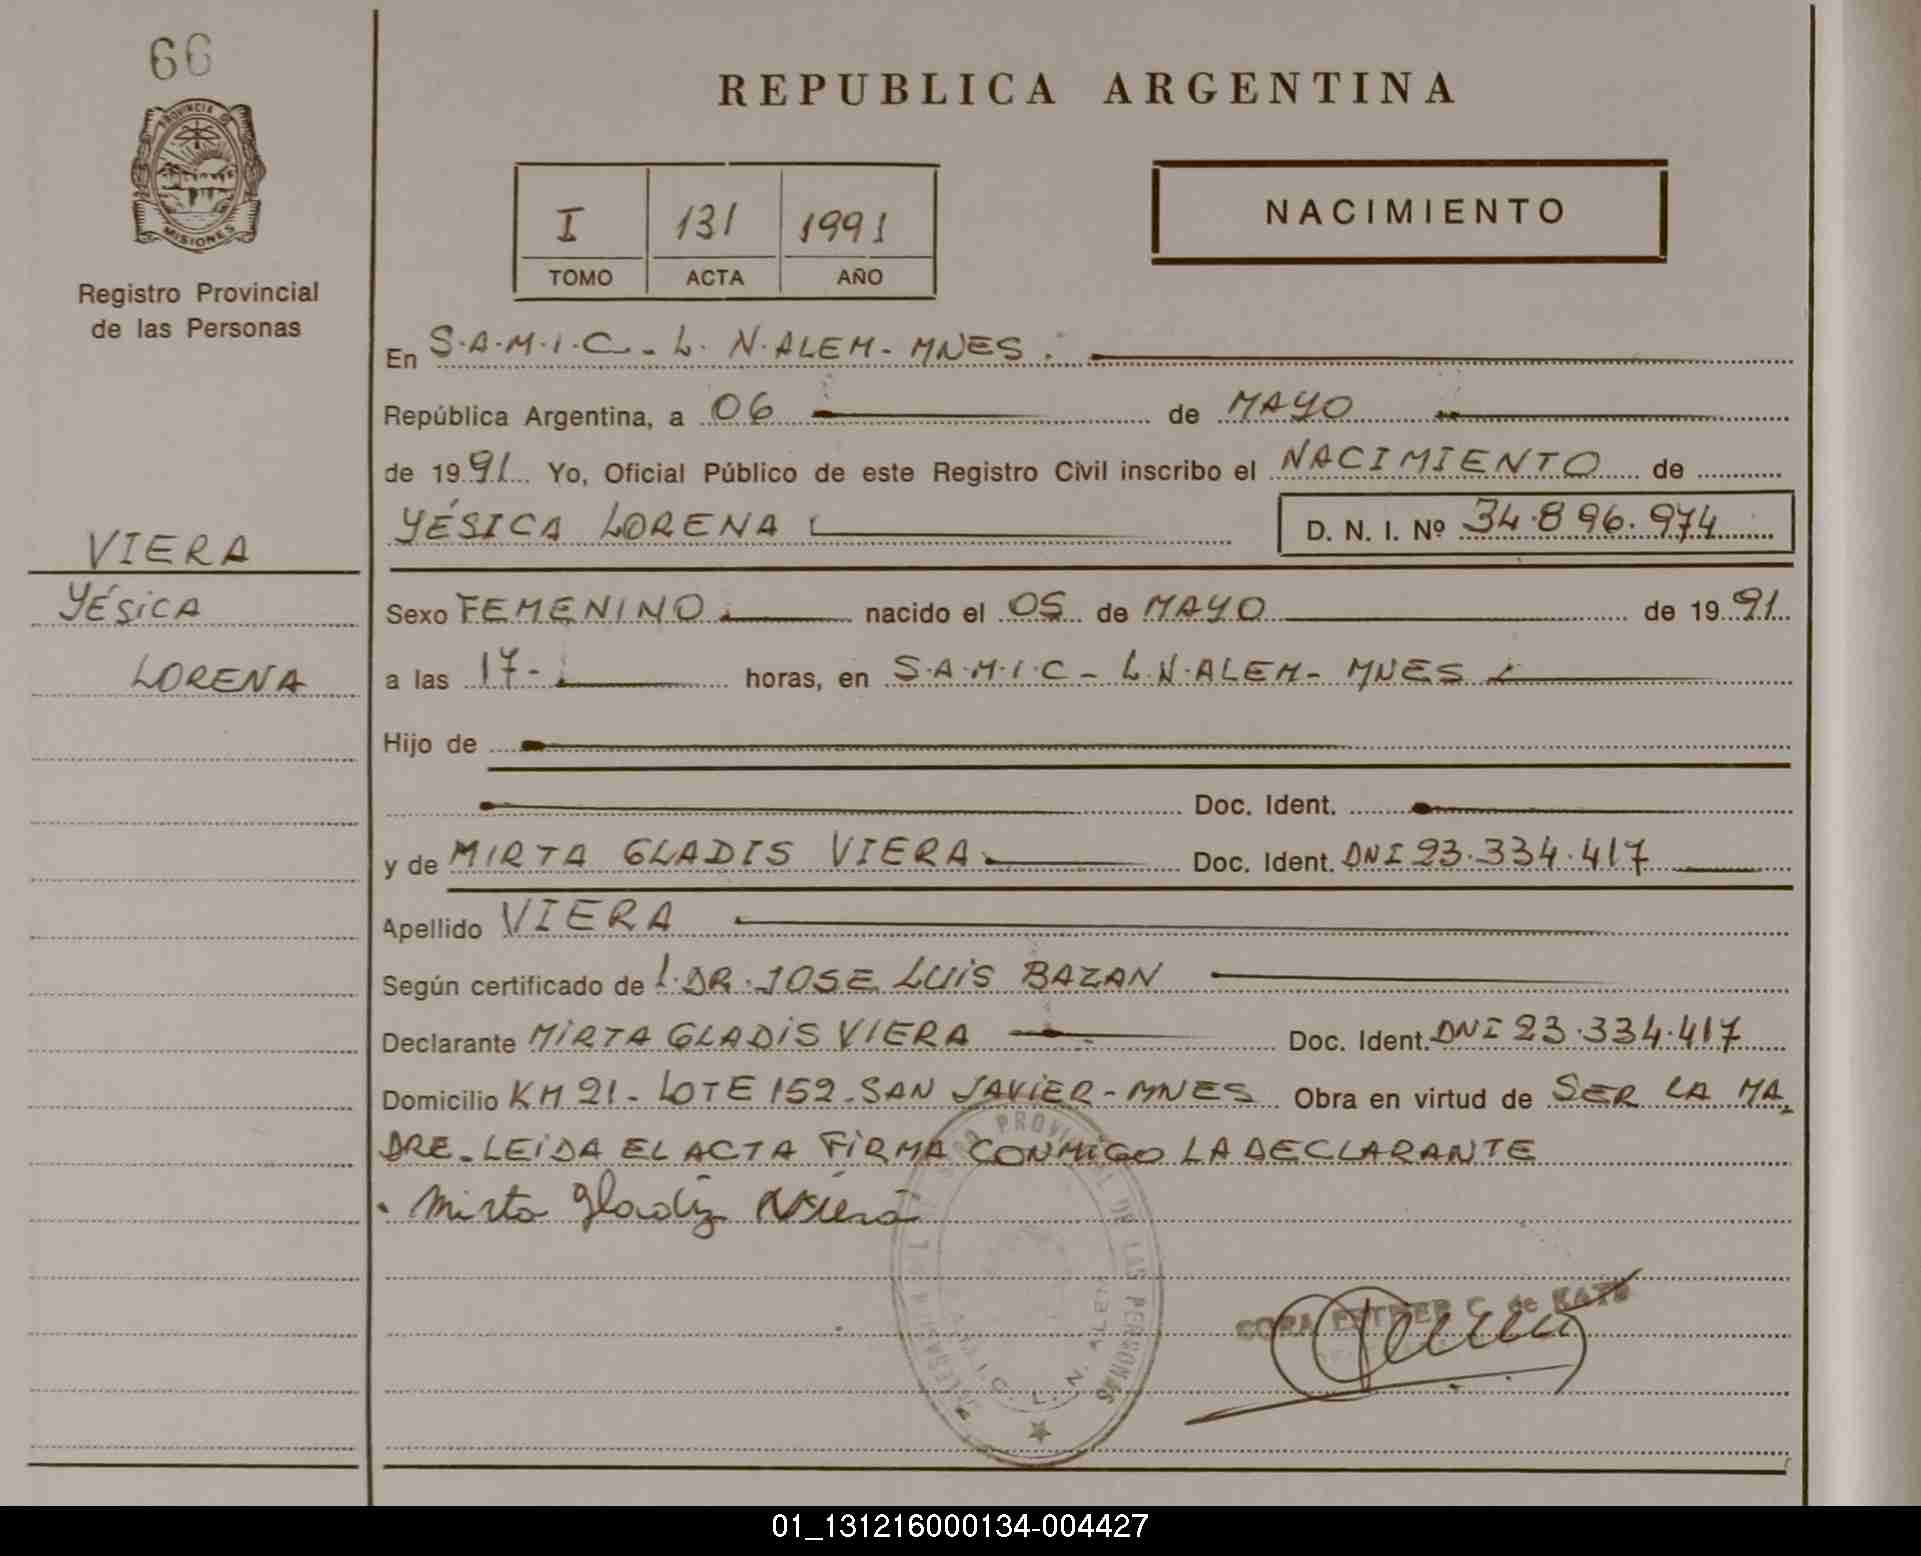 66
PROVINCIA DE
MISIONES
Registro Provincial
de las Personas
VIERA
YÉSICA
LORENA
REPUBLICA ARGENTINA
I 131 1991
TOMO ACTA AÑO
NACIMIENTO
En S.A.M.I.C - L. N. ALEM - MNES.
República Argentina, a 06 de MAYO
de 1991 Yo, Oficial Público de este Registro Civil inscribo el NACIMIENTO de
YÉSICA LORENA D. N. I. Nº 34.896.974
Sexo FEMENINO nacido el 05 de MAYO de 1991
a las 17- horas, en S.A.M.I.C - L.N.ALEM - MNES
Hijo de
Doc. Ident.
y de MIRTA GLADIS VIERA Doc. Ident. DNI 23.334.417
Apellido VIERA
Según certificado de l. DR. JOSE LUIS BAZAN
Declarante MIRTA GLADIS VIERA Doc. Ident. DNI 23.334.417
Domicilio KM 21 - LOTE 152 - SAN JAVIER - MNES Obra en virtud de SER LA MA
DRE - LEIDA EL ACTA FIRMA CONMIGO LA DECLARANTE
Mirta Gladis Viera
PROVINCIAL DE LAS PERSONAS
L. N. ALEM
C. de KATZ
01_131216000134-004427